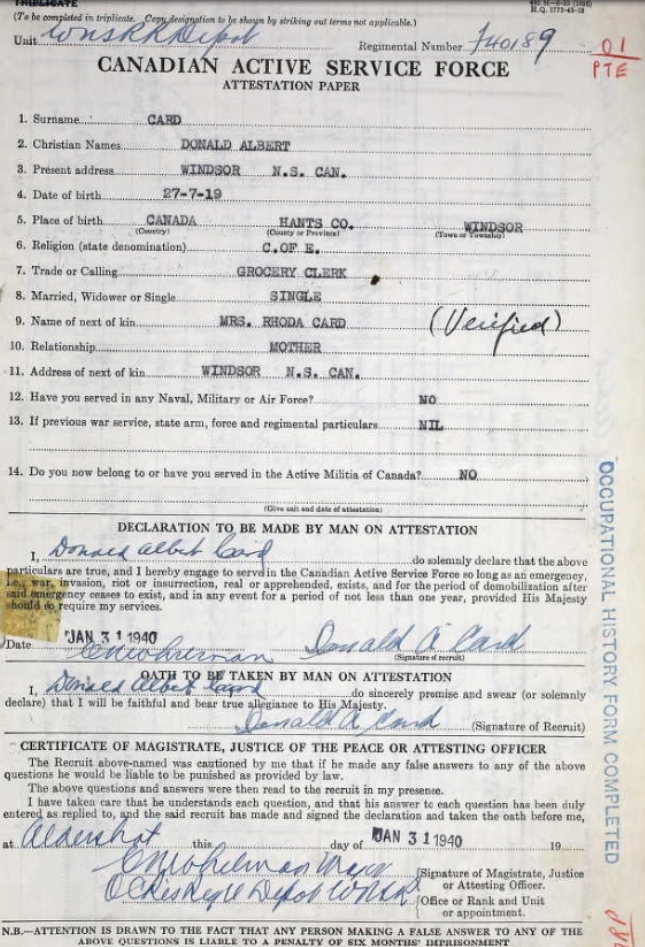 TRIPLICATE
(To be completed in triplicate. Copy designation to be shown by striking out terms not applicable.)
H.Q. 1772-45-18
Unit WNSRR Depot Regimental Number F40189
01
PTE
CANADIAN ACTIVE SERVICE FORCE
ATTESTATION PAPER
1. Surname CARD
2. Christian Names DONALD ALBERT
3. Present address WINDSOR N.S. CAN.
4. Date of birth 27-7-19
5. Place of birth CANADA HANTS CO. WINDSOR
(Country) (County or Province) (Town or Township)
6. Religion (state denomination) C.OF E.
7. Trade or Calling GROCERY CLERK
8. Married, Widower or Single SINGLE
9. Name of next of kin MRS. RHODA CARD (Verified)
10. Relationship MOTHER
11. Address of next of kin WINDSOR N.S. CAN.
12. Have you served in any Naval, Military or Air Force? NO
13. If previous war service, state arm, force and regimental particulars NIL
14. Do you now belong to or have you served in the Active Militia of Canada? NO
(Give unit and date of attestation)
DECLARATION TO BE MADE BY MAN ON ATTESTATION
I, Donald Albert Card do solemnly declare that the above
particulars are true, and I hereby engage to serve in the Canadian Active Service Force so long as an emergency,
i.e., war, invasion, riot or insurrection, real or apprehended, exists, and for the period of demobilization after
said emergency ceases to exist, and in any event for a period of not less than one year, provided His Majesty
should so require my services.
Date JAN 31 1940 Donald A Card
(Signature of recruit)
OATH TO BE TAKEN BY MAN ON ATTESTATION
I, Donald Albert Card do sincerely promise and swear (or solemnly
declare) that I will be faithful and bear true allegiance to His Majesty.
Donald A. Card (Signature of Recruit)
CERTIFICATE OF MAGISTRATE, JUSTICE OF THE PEACE OR ATTESTING OFFICER
The Recruit above-named was cautioned by me that if he made any false answers to any of the above
questions he would be liable to be punished as provided by law.
The above questions and answers were then read to the recruit in my presence.
I have taken care that he understands each question, and that his answer to each question has been duly
entered as replied to, and the said recruit has made and signed the declaration and taken the oath before me,
at Aldershot this day of JAN 31 1940 19
(Signature of Magistrate, Justice
or Attesting Officer.
Depot WNSR
(Office or Rank and Unit
or appointment.
N.B.—ATTENTION IS DRAWN TO THE FACT THAT ANY PERSON MAKING A FALSE ANSWER TO ANY OF THE
ABOVE QUESTIONS IS LIABLE TO A PENALTY OF SIX MONTHS' IMPRISONMENT
OCCUPATIONAL HISTORY FORM COMPLETED